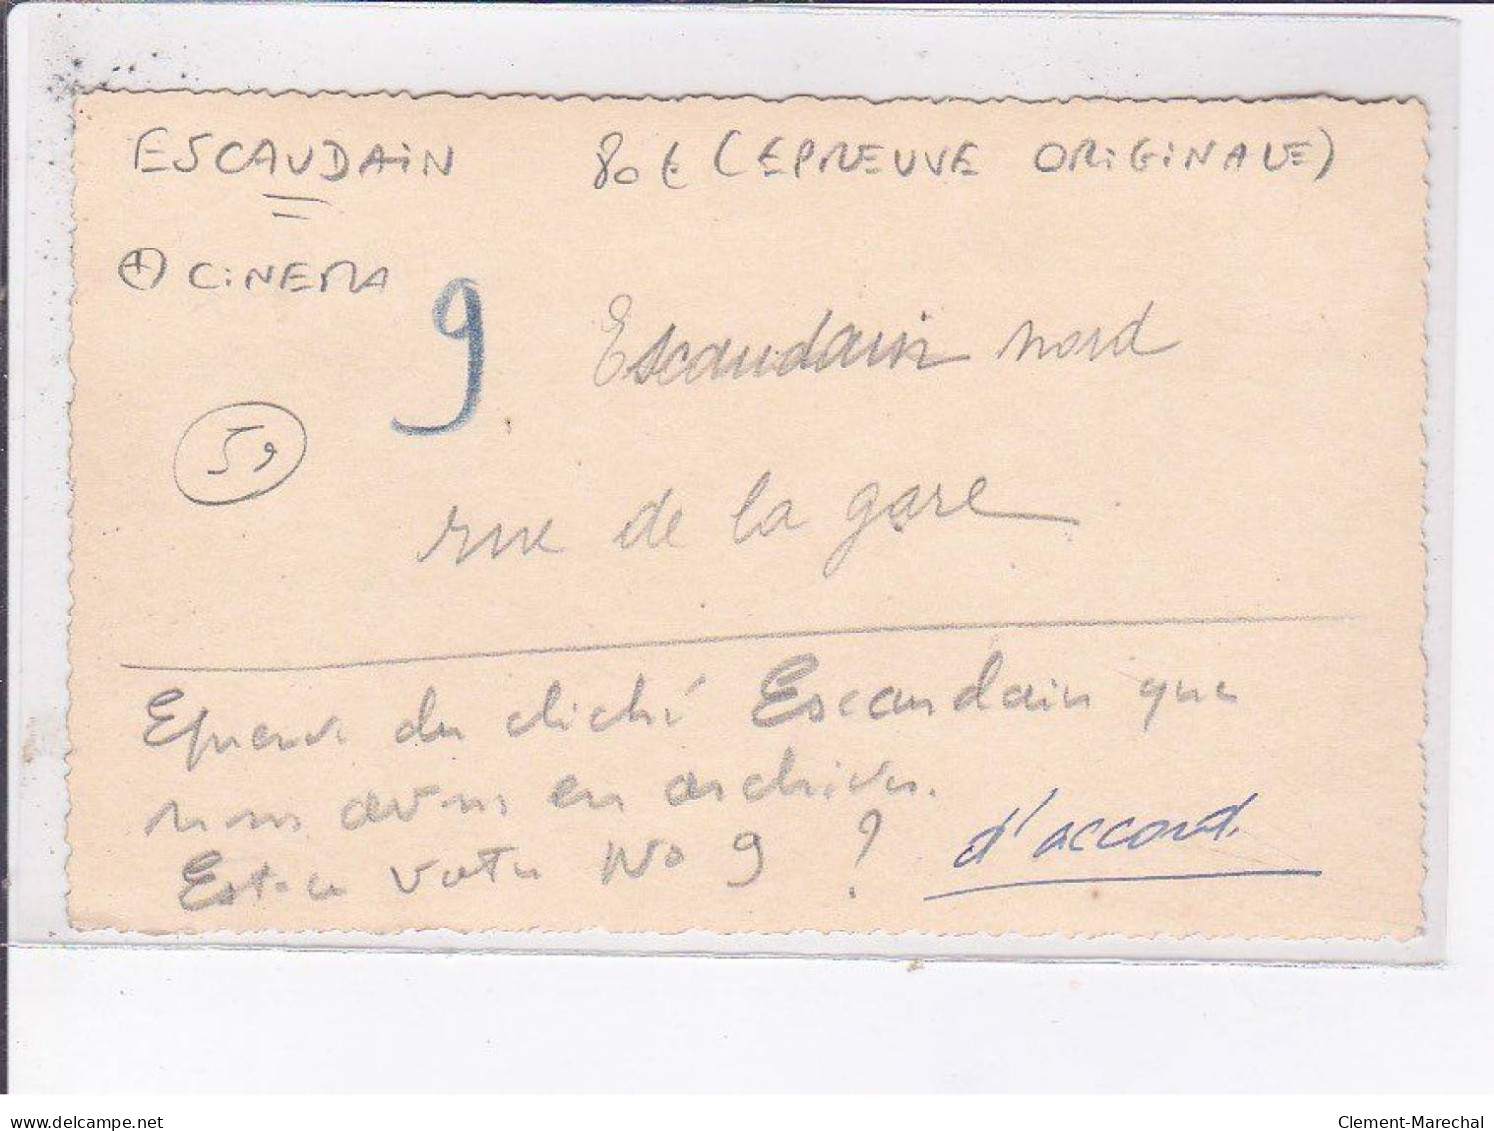 ESCAUDAIN 80€ (EPREUVE ORIGINALE)
+ CINEMA
9
Escaudain nord
59
rue de la gare
Epreuve du cliché Escaudain que
nous avons en archives.
Est-ce votre No 9 ?
d'accord.
delcampe.net
Clement-Marechal